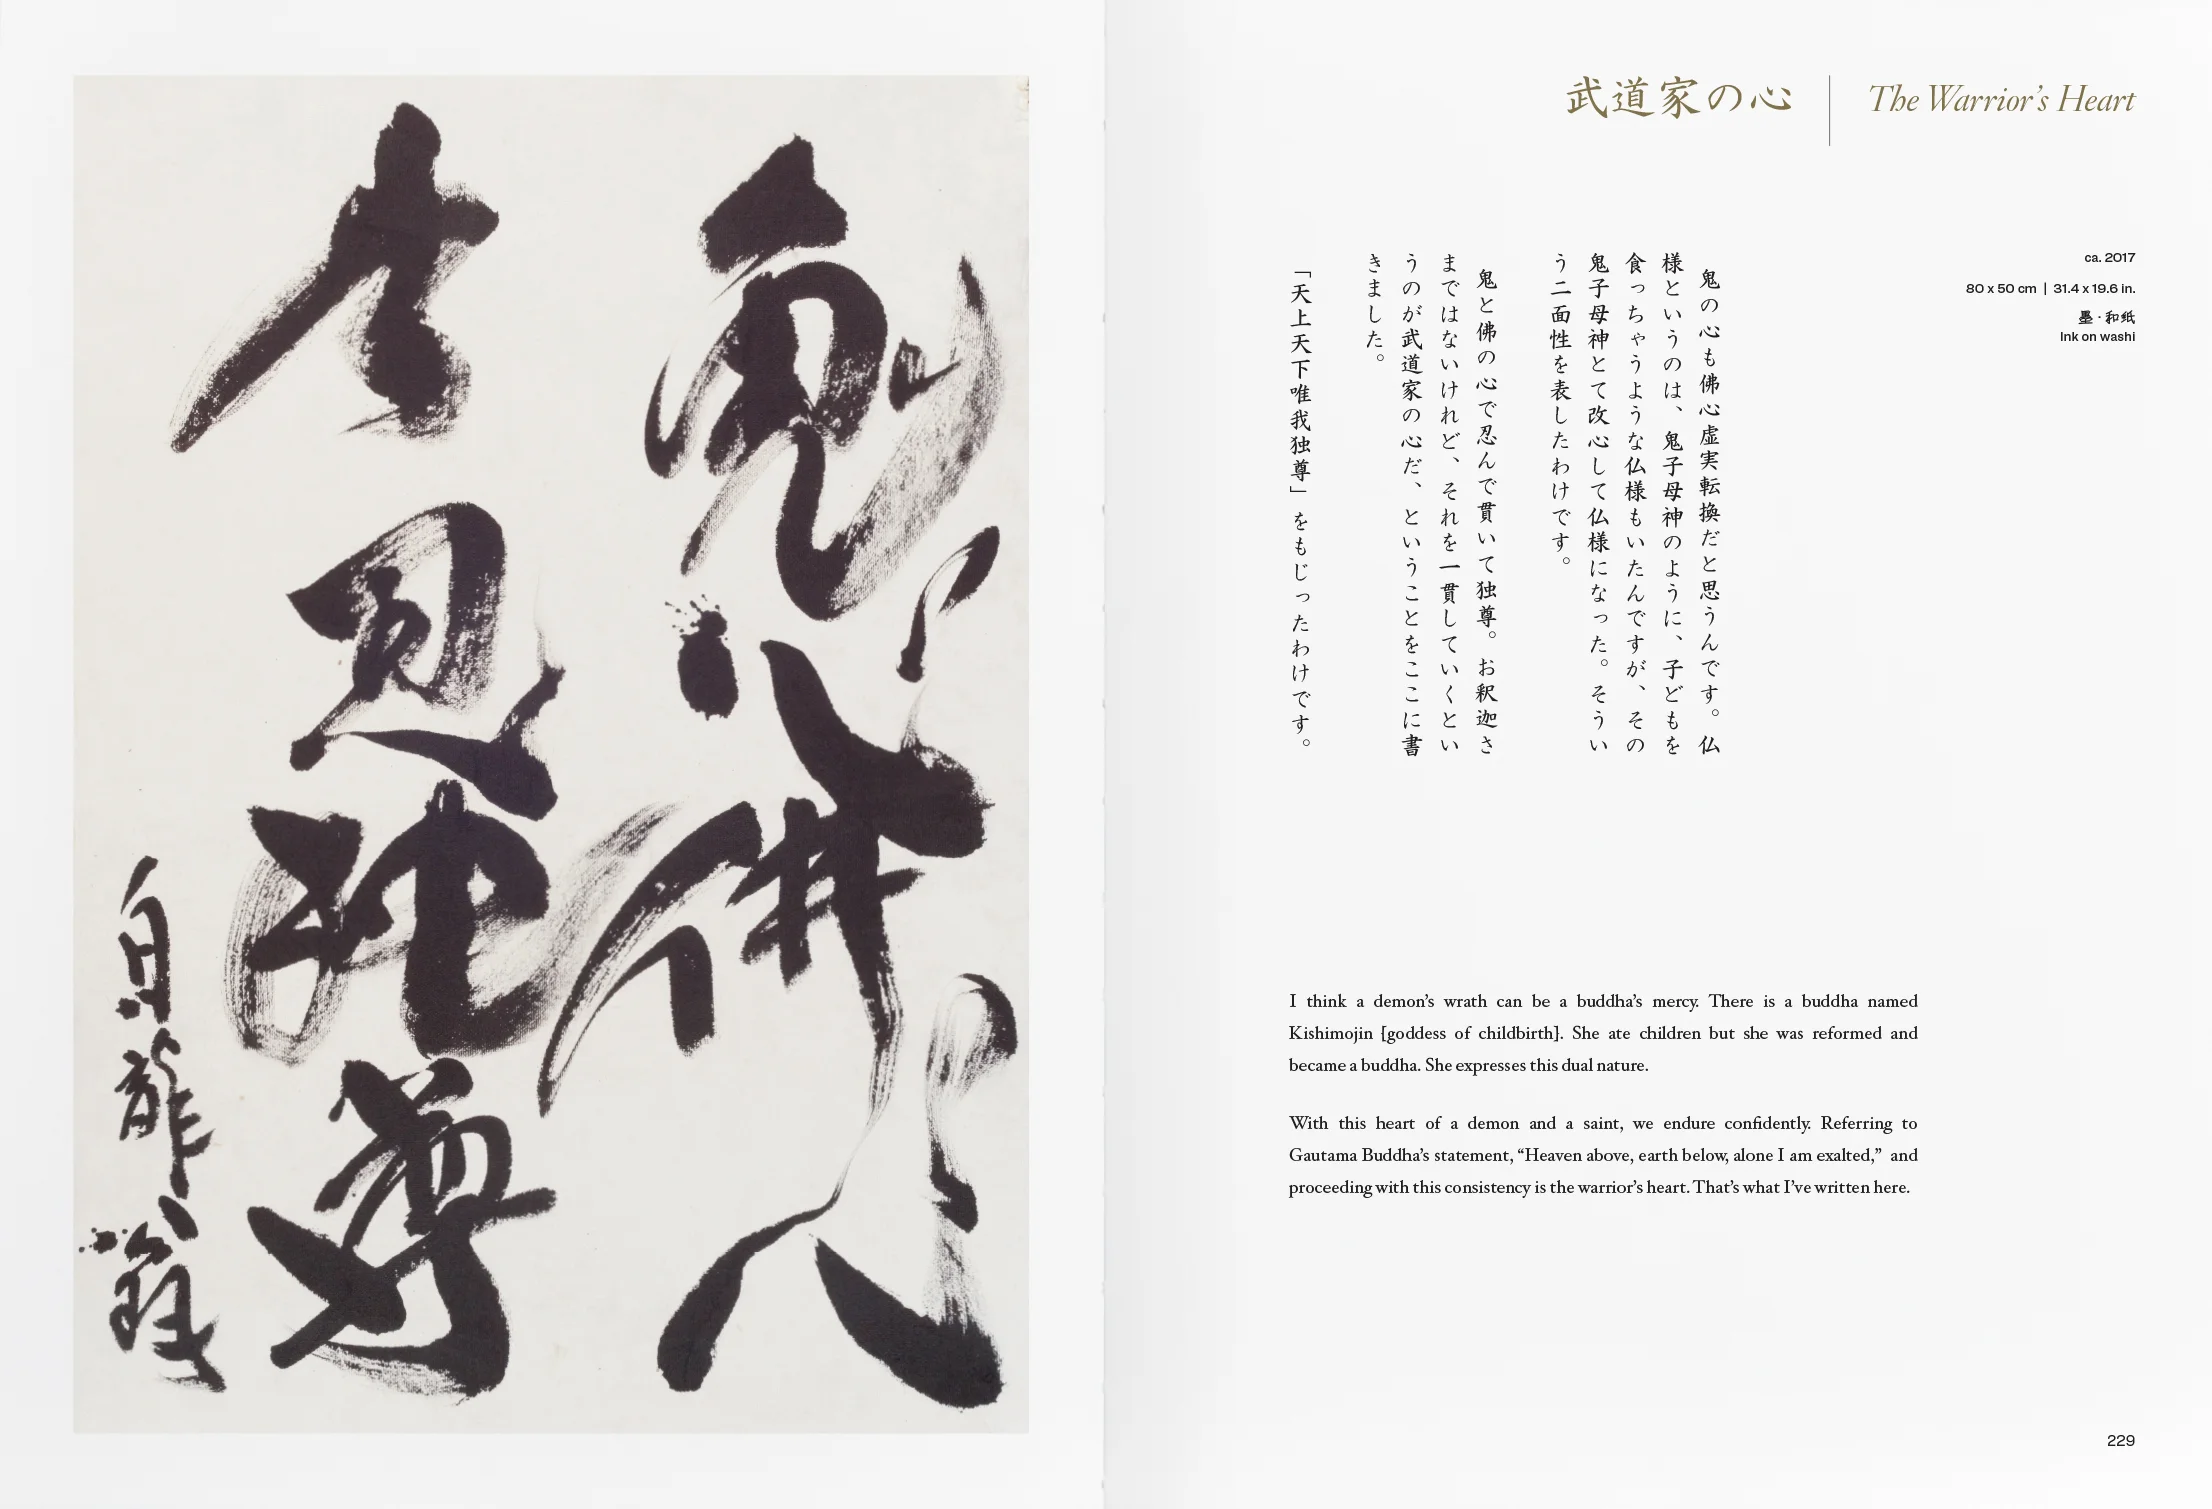 鬼心佛心
忍独尊
白龍翁
武道家の心
The Warrior's Heart
ca. 2017
80 x 50 cm | 31.4 x 19.6 in.
墨・和紙
Ink on washi
鬼の心も佛心虚実転換だと思うんです。仏
様というのは、鬼子母神のように、子どもを
食っちゃうような仏様もいたんですが、その
鬼子母神とて改心して仏様になった。そうい
う二面性を表したわけです。
鬼と佛の心で忍んで貫いて独尊。お釈迦さ
まではないけれど、それを一貫していくとい
うのが武道家の心だ、ということをここに書
きました。
「天上天下唯我独尊」をもじったわけです。
I think a demon's wrath can be a buddha's mercy. There is a buddha named
Kishimojin [goddess of childbirth]. She ate children but she was reformed and
became a buddha. She expresses this dual nature.
With this heart of a demon and a saint, we endure confidently. Referring to
Gautama Buddha's statement, “Heaven above, earth below, alone I am exalted,” and
proceeding with this consistency is the warrior's heart. That's what I've written here.
229